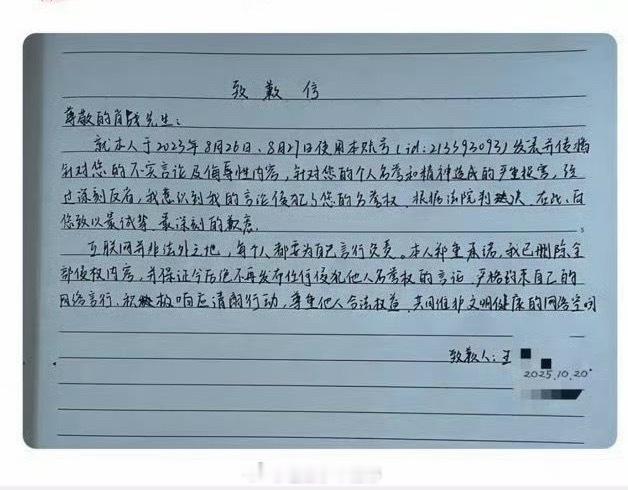 致歉信
尊敬的肖战先生：
就本人于2023年8月26日、8月27日使用本账号（id:213393093）发表并传播
针对您的不实言论及侮辱性内容，针对您的个人名誉和精神造成的严重损害，经
过深刻反省，我意识到我的言论侵犯了您的名誉权，根据法院判决，在此，向
您致以最诚挚、最深刻的歉意。
互联网并非法外之地，每个人都要为自己言行负责。本人郑重承诺，我已删除全
部侵权内容，并保证今后绝不再发布任何侵犯他人名誉权的言论，严格约束自己的
网络言行，积极响应清朗行动，尊重他人合法权益，共同维护文明健康的网络空间
致歉人：王
2025.10.20